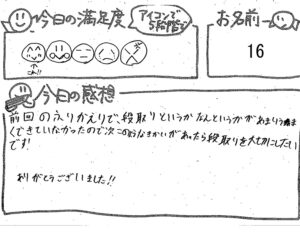 今日の満足度
アイコンで
5段階で
お名前
16
これ!!
今日の感想
前回のふりかえりで、段取りというかなんというかがあまりうまく
できていなかったので次このようなきかいがあったら段取りを大切にしたい
です!
ありがとうございました!!